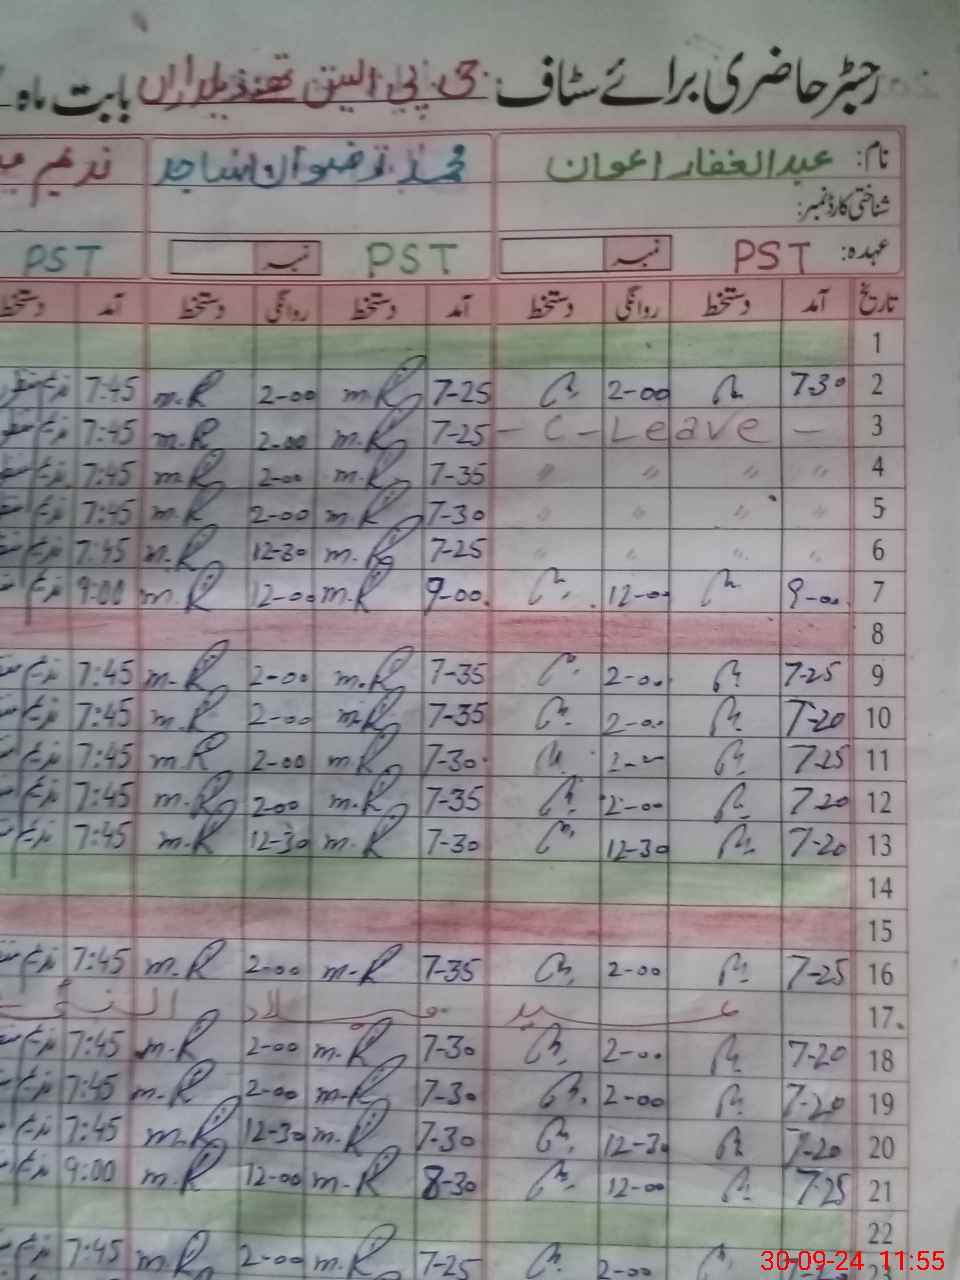 رجسٹر حاضری برائے سٹاف جی پی ایس بابت ماہ
نام: عبدالغفار اعوان محمد رضوان ساجد ندیم
شناختی کارڈ نمبر:
عہدہ: PST نمبر PST نمبر PST
تاریخ آمد دستخط روانگی دستخط آمد دستخط روانگی دستخط آمد دستخط
1
2 7-30 2-00 7-25 m.R 2-00 m.R 7:45
3 - C - Leave - 7-25 m.R 2-00 m.R 7:45
4 " " " " 7-35 m.R 2-00 m.R 7:45
5 " " " " 7-30 m.R 2-00 m.R 7:45
6 " " " " 7-25 m.R 12-30 m.R 7:45
7 9-00 12-00 9-00 m.R 12-00 m.R 9:00
8
9 7-25 2-00 7-35 m.R 2-00 m.R 7:45
10 7-20 2-00 7-35 m.R 2-00 m.R 7:45
11 7-25 7-30 m.R 2-00 m.R 7:45
12 7-20 2-00 7-35 m.R 200 m.R 7:45
13 7-20 12-30 7-30 m.R 12-30 m.R 7:45
14
15
16 7-25 2-00 7-35 m-R 2-00 m.R 7:45
17 عید میلاد النبی
18 7-20 2-00 7-30 m.R 2-00 m.R 7:45
19 7-20 2-00 7-30 m.R 2-00 m.R 7:45
20 7-20 12-30 7-30 m.R 12-30 m.R 7:45
21 7-25 12-00 8-30 m.R 12-00 m.R 9:00
22
2-00 7-25 m.R 2-00 m.R 7:45
30-09-24 11:55